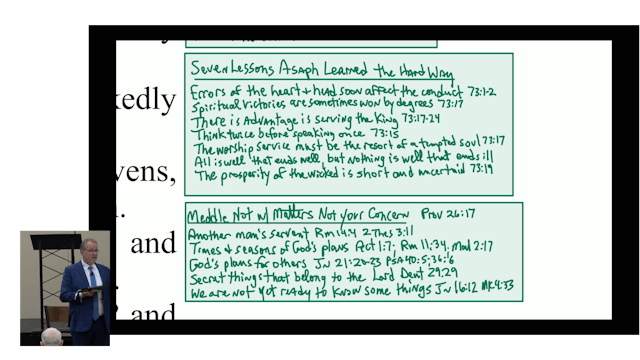 kedly
vens,
and
and
Seven Lessons Asaph Learned the Hard Way
Errors of the heart + head soon affect the conduct 73:1-2
Spiritual victories are sometimes won by degrees 73:17
There is Advantage is serving the King 73:17-24
Think twice before speaking once 73:15
The worship service must be the resort of a tempted soul 73:17
All is well that ends well, but nothing is well that ends ill
The prosperity of the wicked is short and uncertain 73:19
Meddle Not w/ Matters Not Your Concern Prov 26:17
Another man's servent Rm 14:4 2 Thes 3:11
Times & seasons of God's plans Act 1:7; Rm 11:34; Mal 2:17
God's plans for others Jn 21:20-23 PSA 40:5; 36:6
Secret things that belong to the Lord Deut 29:29
We are not yet ready to know some things Jn 16:12 Mk 4:33